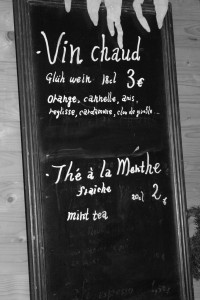 - Vin chaud
Glüh wein 18cl 3€
orange, cannelle, anis,
reglisse, cardamome, clou de girofle...
- Thé à la Menthe
fraîche 20cl 2€
mint tea
espresso